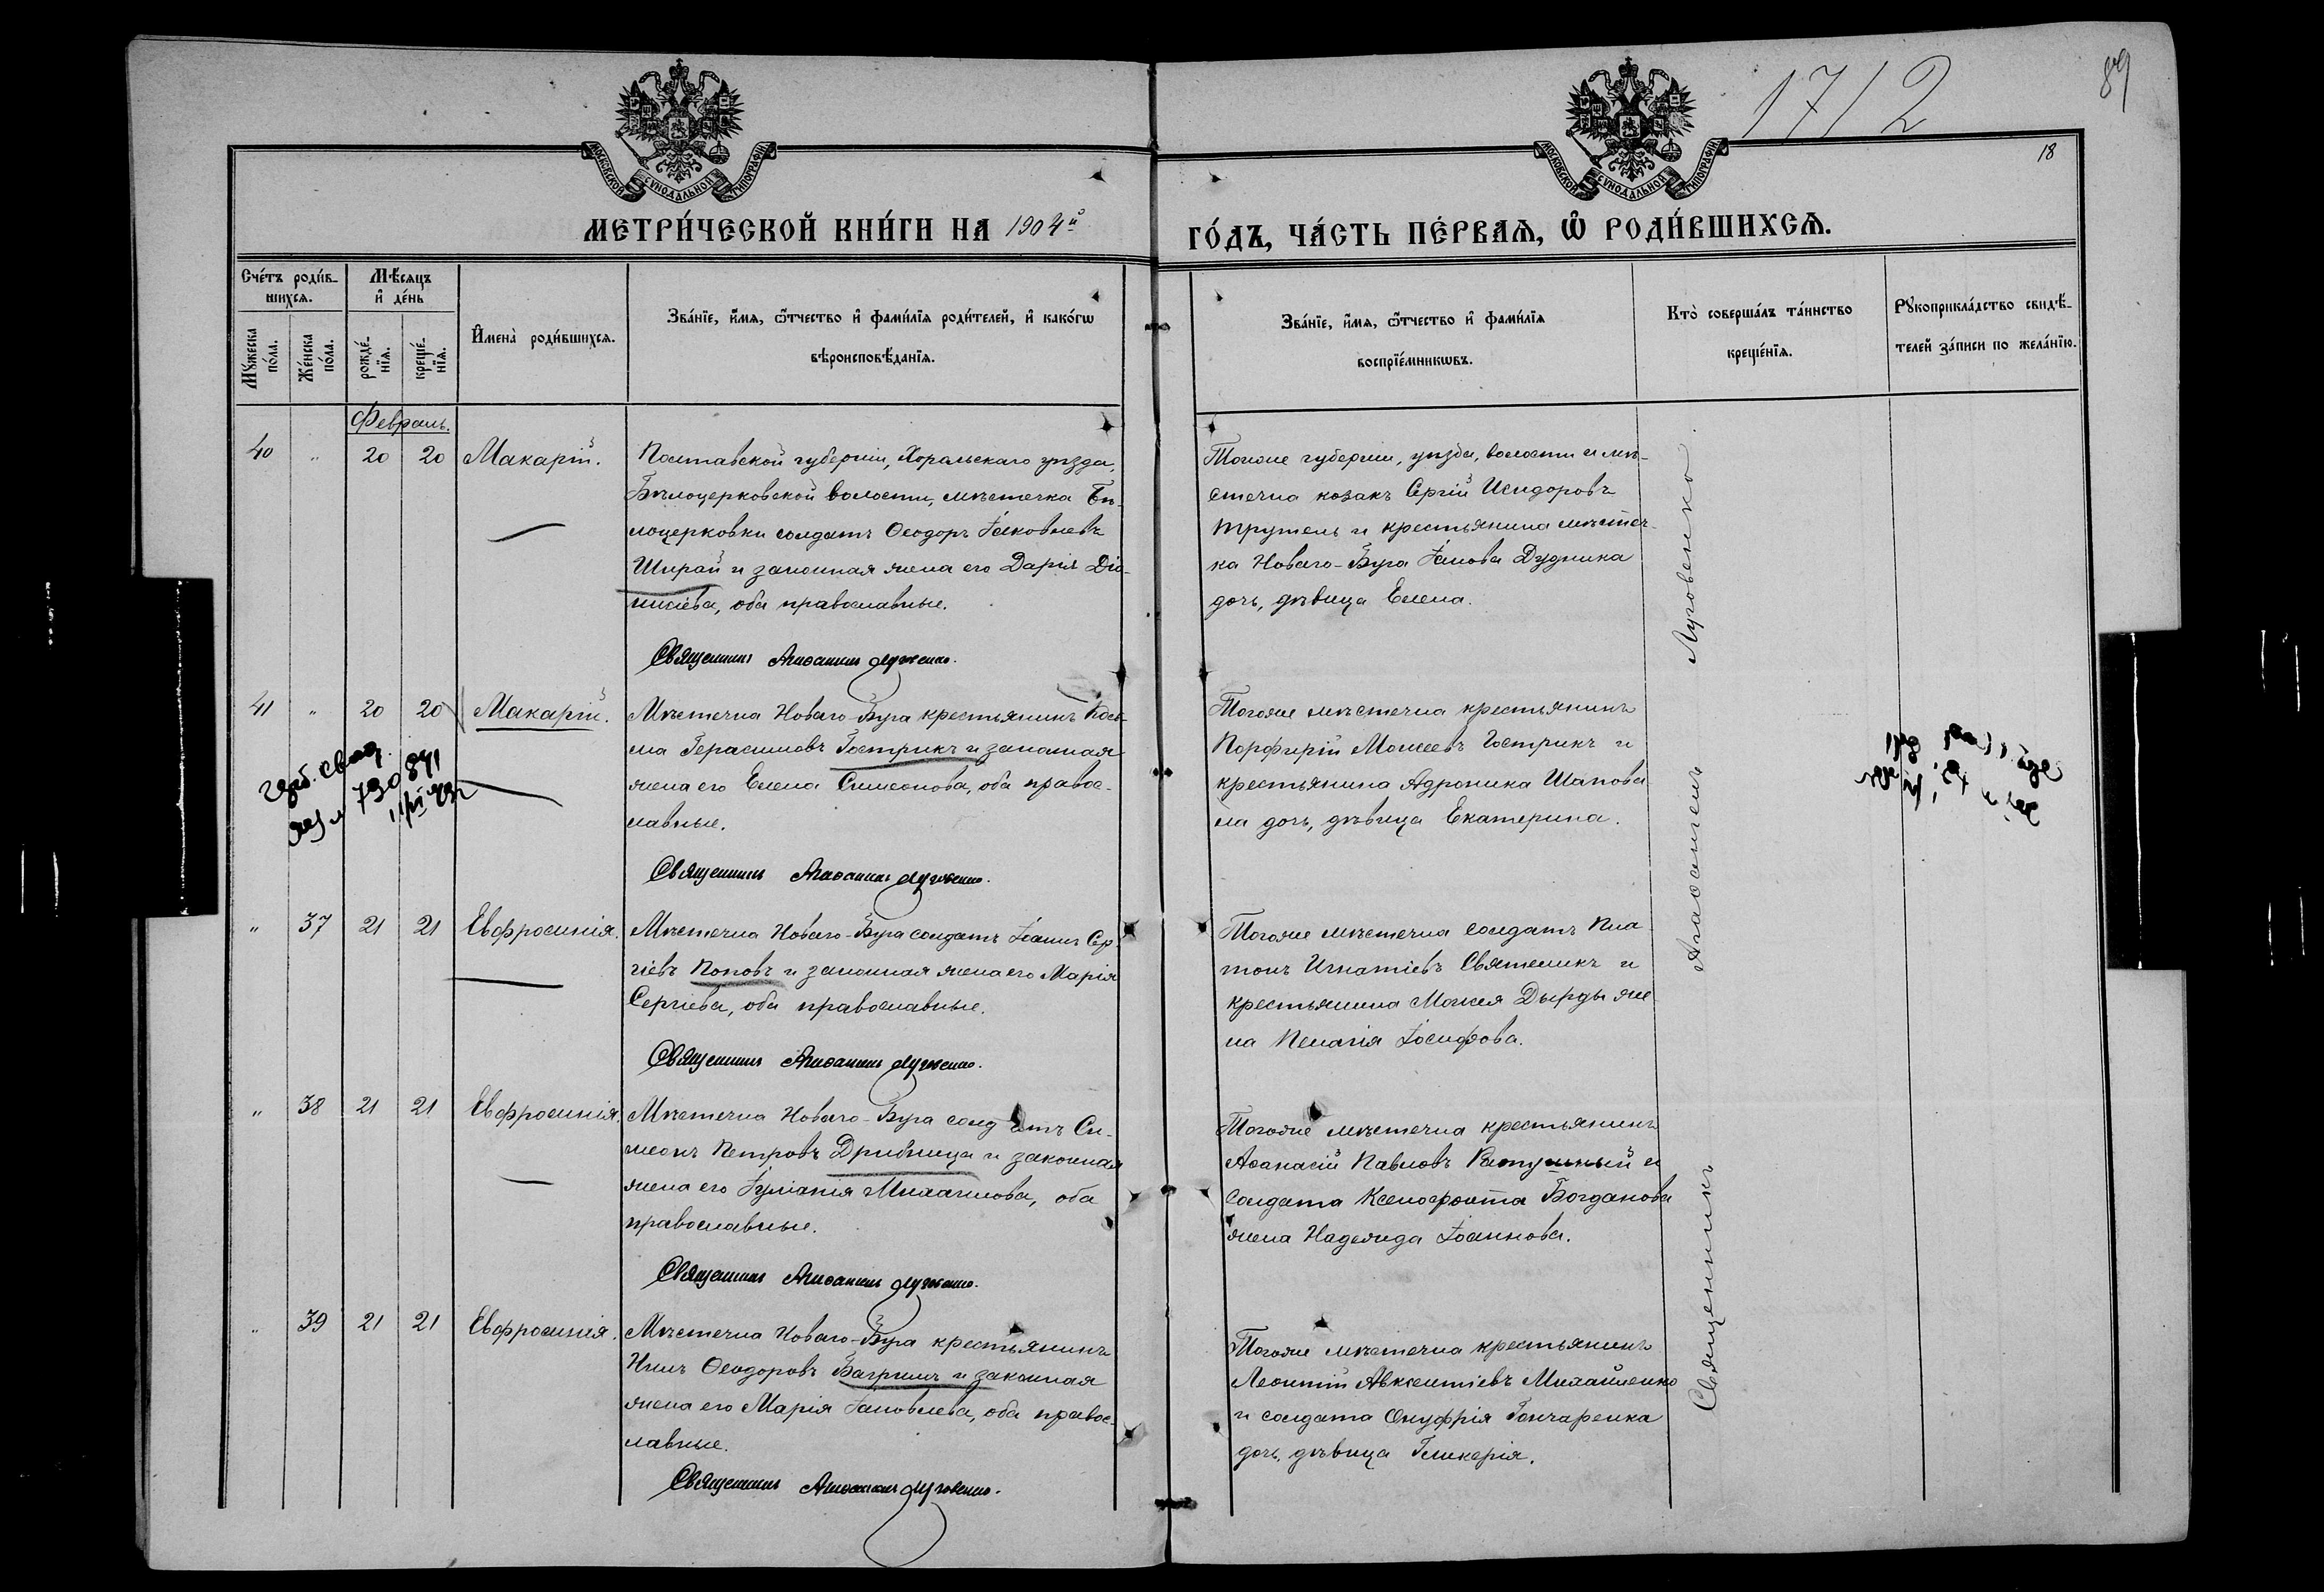 1712
89
18
МОСКОВСКОЙ СУНОДАЛЬНОЙ ТИПОГРАФІИ
МОСКОВСКОЙ СУНОДАЛЬНОЙ ТИПОГРАФІИ
МЕТРИ́ЧЕСКОЙ КНИ́ГИ НА 1904й
ГО́ДЪ, ЧА́СТЬ ПЕ́РВАѦ, Ѡ҆ РОДИ́ВШИХСѦ.
Сче́тъ роди́в-
шихсѧ.
Мꙋ́жеска по́ла.
Же́нска по́ла.
Мѣ́сѧцъ
и҆ де́нь
рожде́-
нїѧ.
креще́-
нїѧ.
И҆мена̀ роди́вшихсѧ.
Зва́нїе, и҆́мѧ, ѻ҆́тчество и҆ фами́лїѧ роди́телей, и҆ како́гѡ
вѣроисповѣ́данїѧ.
Зва́нїе, и҆́мѧ, ѻ҆́тчество и҆ фами́лїѧ
воспрїе́мникѡвъ.
Кто̀ соверша́лъ та́инство
креще́нїѧ.
Рꙋкоприкла́дство свидѣ́-
телей за́писи по жела́нїю.
Февраль.
40 " 20 20 Макарій.
Полтавской губерніи, Хорольскаго уѣзда,
Бѣлоцерковской волости, мѣстечка Бѣ-
лоцерковки солдатъ Ѳеодоръ Іаковлевъ
Ширай и законная жена его Дарія Діо-
нисіева, оба православные.
Священникъ Аѳанасій Луговенко.
Тойже губерніи, уѣзда, волости и мѣ-
стечка козакъ Сергій Исидоровъ
Трутель и крестьянина мѣстеч-
ка Новаго-Буга Іакова Дудника
дочь, дѣвица Елена.
41 " 20 20 Макарій.
Мѣстечка Новаго-Буга крестьянинъ Кось-
ма Герасимовъ Гострикъ и законная
жена его Елена Симеонова, оба правос-
лавные.
Священникъ Аѳанасій Луговенко.
730841
Тогоже мѣстечка крестьянинъ
Порфирій Моисеевъ Гострикъ и
крестьянина Адроника Шапова
ла дочь, дѣвица Екатерина.
" 37 21 21 Евфросинія.
Мѣстечка Новаго-Буга солдатъ Іоаннъ Сер-
гіевъ Поповъ и законная жена его Марія
Сергіева, оба православные.
Священникъ Аѳанасій Луговенко.
Тогоже мѣстечка солдатъ Пла-
тонъ Игнатіевъ Святеникъ и
крестьянина Моисея Дырды же
на Пелагія Іосифова.
" 38 21 21 Евфросинія.
Мѣстечка Новаго-Буга солдатъ Си-
меонъ Петровъ Дрибница и законная
жена его Іуліанія Михаилова, оба
православные.
Священникъ Аѳанасій Луговенко.
Тогоже мѣстечка крестьянинъ
Аѳанасій Павловъ Ратушный и
солдата Ксенофонта Богданова
жена Надежда Іоаннова.
" 39 21 21 Евфросинія.
Мѣстечка Новаго-Буга крестьянинъ
Нилъ Ѳеодоровъ Багринъ и законная
жена его Марія Іаковлева, оба правос-
лавные.
Священникъ Аѳанасій Луговенко.
Тогоже мѣстечка крестьянинъ
Леонтій Авксентіевъ Михайленко
и солдата Онуфрія Гончаренка
дочь, дѣвица Гликерія.
Священникъ Аѳанасій Луговенко.